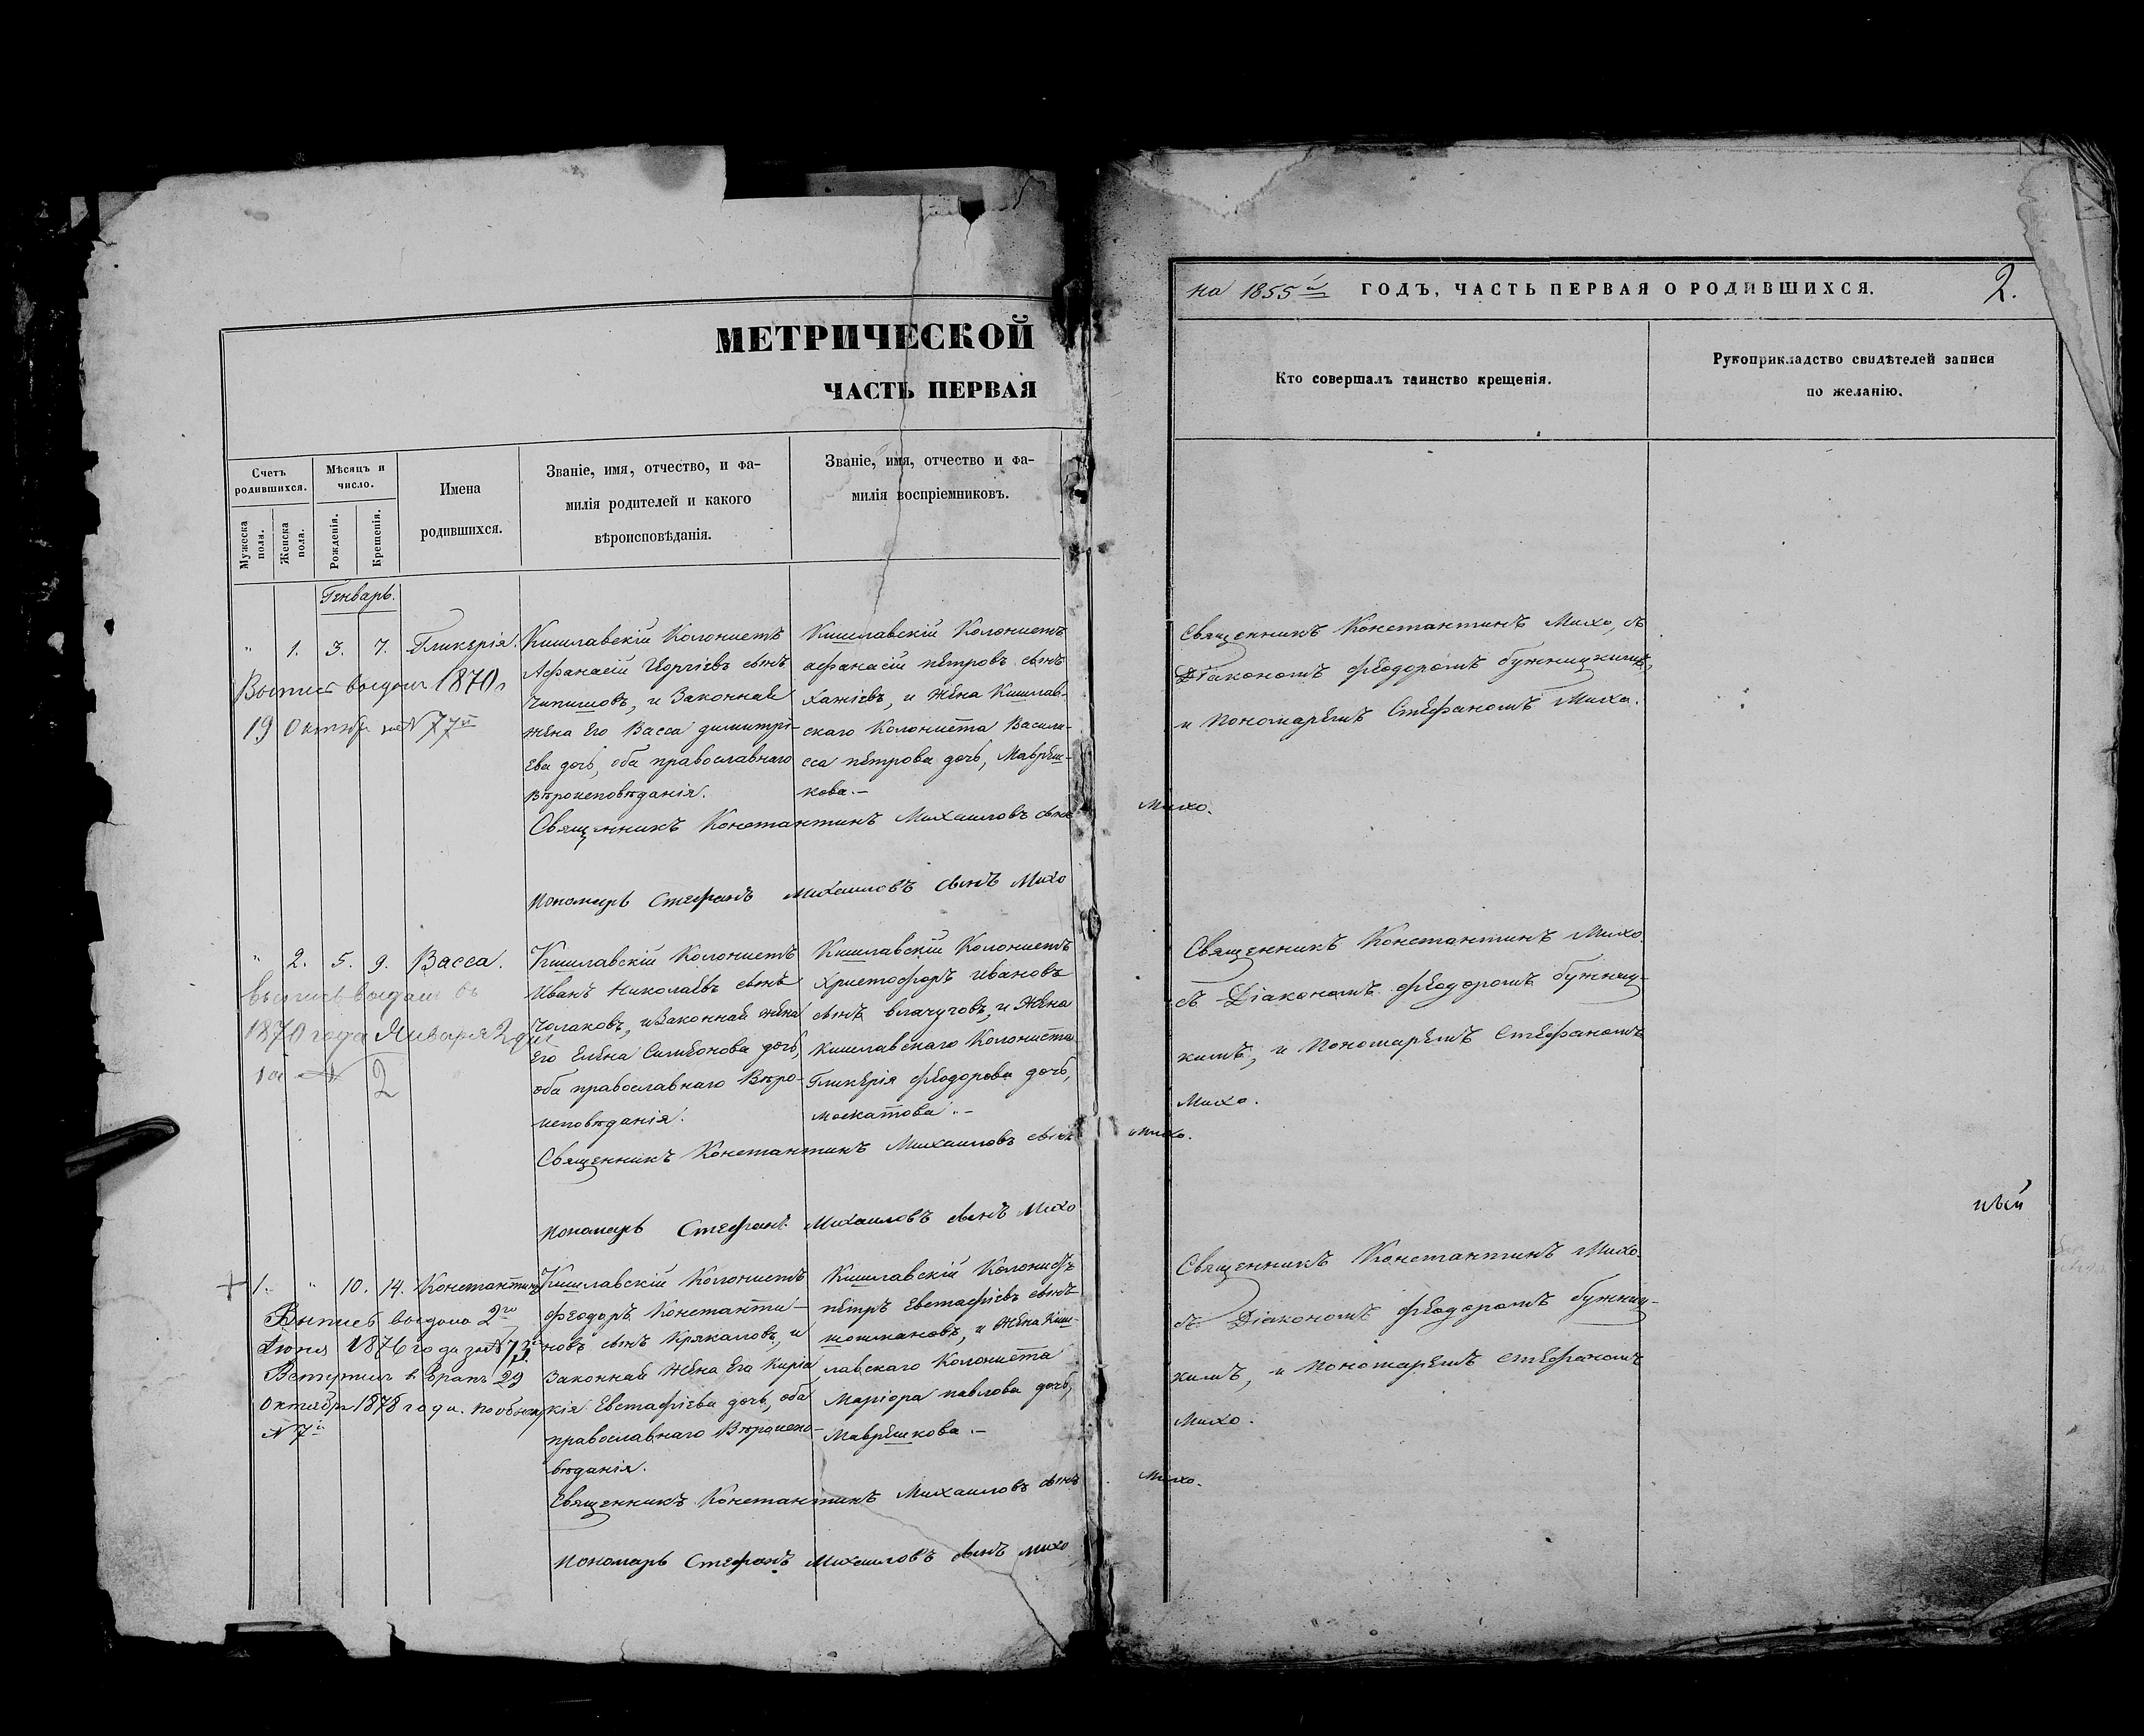 МЕТРИЧЕСКОЙ
ЧАСТЬ ПЕРВАЯ
Счетъ родившихся.
Мужеска пола.
Женска пола.
Мѣсяцъ и число.
Рожденія.
Крещенія.
Имена
родившихся.
Званіе, имя, отчество, и фа-
милія родителей и какого
вѣроисповѣданія.
Званіе, имя, отчество и фа-
милія воспріемниковъ.
Генварь.
" 1. 3. 7. Гликерія.
Выпись выдана 1870
19 Октября за N 77
Кишлавскій Колонистъ
Афанасій Георгіевъ сынъ
Чипишовъ, и Законная
жена Его Васса димитрі-
Ева дочь, оба православнаго
вѣроисповѣданія.
Кишлавскій Колонистъ
афанасій петровъ сынъ
хажіевъ, и жена Кишлав-
скаго Колониста Васили-
сса петрова дочь, Маврѣш-
кова.-
Священникъ Константинъ Михаиловъ сынъ Михо.
Пономарь Стефанъ Михаиловъ сынъ Михо
" 2. 5. 9. Васса.
Выпись выдана въ
1870 года Января 2 дня
за N 2
Кишлавскій Колонистъ
Иванъ Николаевъ сынъ
Чолаковъ, и Законная жена
Его Елена Симеонова дочь,
оба православнаго Вѣро-
исповѣданія.
Кишлавскій Колонистъ
Христофоръ Ивановъ
сынъ влачуговъ, и жена
кишлавскаго Колониста
Гликерія Феодорова дочь,
москатова.-
Священникъ Константинъ Михаиловъ сынъ Михо.
Пономарь Стефанъ Михаиловъ сынъ Михо
+ 1. " 10. 14. Константинъ
Выпись выдана 2го
Іюня 1876 года за N 73
Вступилъ в бракъ 29
Октября 1878 года. по обыску
N 7
Кишлавскій Колонистъ
Феодоръ Константи-
новъ сынъ Кракаловъ, и
Законная жена Его Кирія-
кія Евстафіева дочь, оба
православнаго Вѣроиспо-
вѣданія.
Кишлавскій Колонистъ
петръ Евстафіевъ сынъ
шошмановъ, и жена Киш-
лавскаго Колониста
Маріора павлова дочь,
Маврѣшкова.-
Священникъ Константинъ Михаиловъ сынъ Михо.
Пономарь Стефанъ Михаиловъ сынъ Михо
на 1855й ГОДЪ, ЧАСТЬ ПЕРВАЯ О РОДИВШИХСЯ. 2.
Кто совершалъ таинство крещенія.
Рукоприкладство свидѣтелей записи
по желанію.
Священникъ Константинъ Михо, съ
Діакономъ Феодоромъ бужницкимъ,
и Пономаремъ Стефаномъ Михо.
Священникъ Константинъ Михо.
съ Діакономъ Феодоромъ бужниц-
кимъ, и Пономаремъ Стефаномъ
Михо.
ный
Священникъ Константинъ Михо.
съ Діакономъ Феодоромъ бужниц-
кимъ, и Пономаремъ Стефаномъ
Михо.